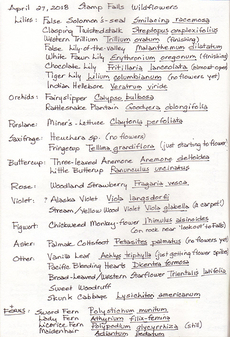 April 27, 2018 Stamp Falls Wildflowers
Lilies: False Solomon's-seal Smilacina racemosa
Clasping Twistedstalk Streptopus amplexifolius
Western Trillium Trillium ovatum (finishing)
False Lily-of-the-valley Maianthemum dilatatum
White Fawn Lily Erythronium oregonum (finishing)
Chocolate Lily Fritillaria lanceolata (almost open)
Tiger Lily Lilium columbianum (no flowers yet)
Indian Hellebore Veratrum viride
Orchids: Fairyslipper Calypso bulbosa
Rattlesnake Plantain Goodyera oblongifolia
Purslane: Miner's-Lettuce Claytonia perfoliata
Saxifrage: Heuchera sp. (no flowers)
Fringecup Tellima grandiflora (just starting to flower)
Buttercup: Three-leaved Anemone Anemone deltoidea
Little Buttercup Ranunculus uncinatus
Rose: Woodland Strawberry Fragaria vesca
Violet: ? Alaska Violet Viola langsdorfii
Stream/Yellow Wood Violet Viola glabella (a carpet!)
Figwort: Chickweed Monkey-flower Mimulus alsinoides
(on rock near 'lookout' to Falls)
Aster: Palmate Coltsfoot Petasites palmatus (no flowers yet)
Other: Vanilla Leaf Achlys triphylla (just getting flower spikes)
Pacific Bleeding Hearts Dicentra formosa
Broad-Leaved/Western Starflower Trientalis latifolia
Sweet Woodruff
Skunk Cabbage Lysichiton americanum
Ferns: Sword Fern Polystichum munitum
Lady Fern Athyrium filix-femina
Licorice Fern Polypodium glycyrrhiza (still)
Maidenhair Adiantum pedatum